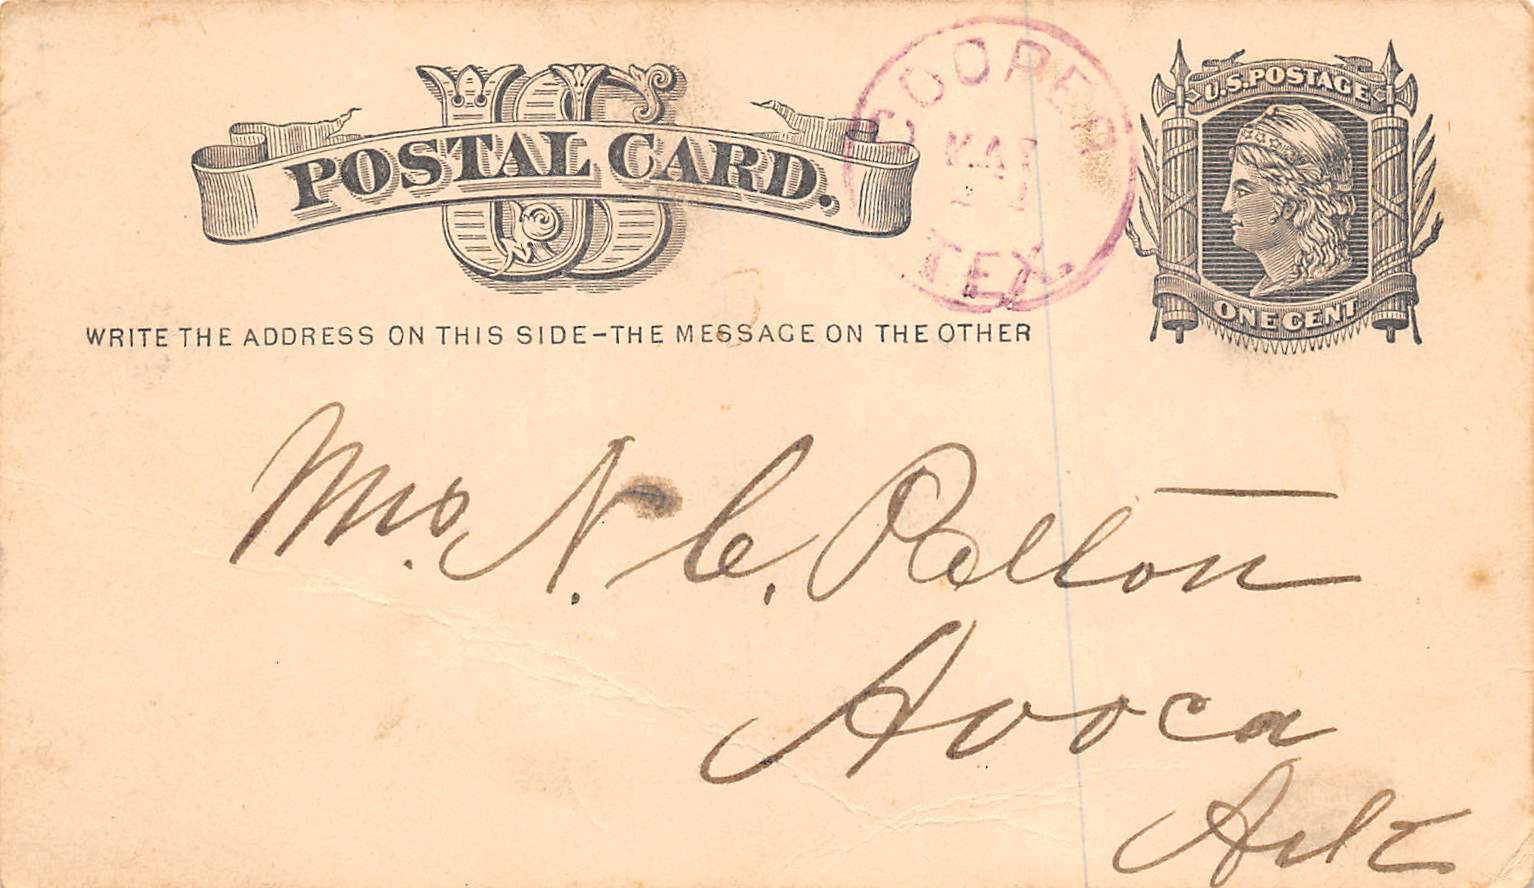 US
POSTAL CARD.
COOPER
MAR
TEX.
U.S. POSTAGE
ONE CENT
WRITE THE ADDRESS ON THIS SIDE-THE MESSAGE ON THE OTHER
Mrs. N. C. Pelton
Avoca
Ark